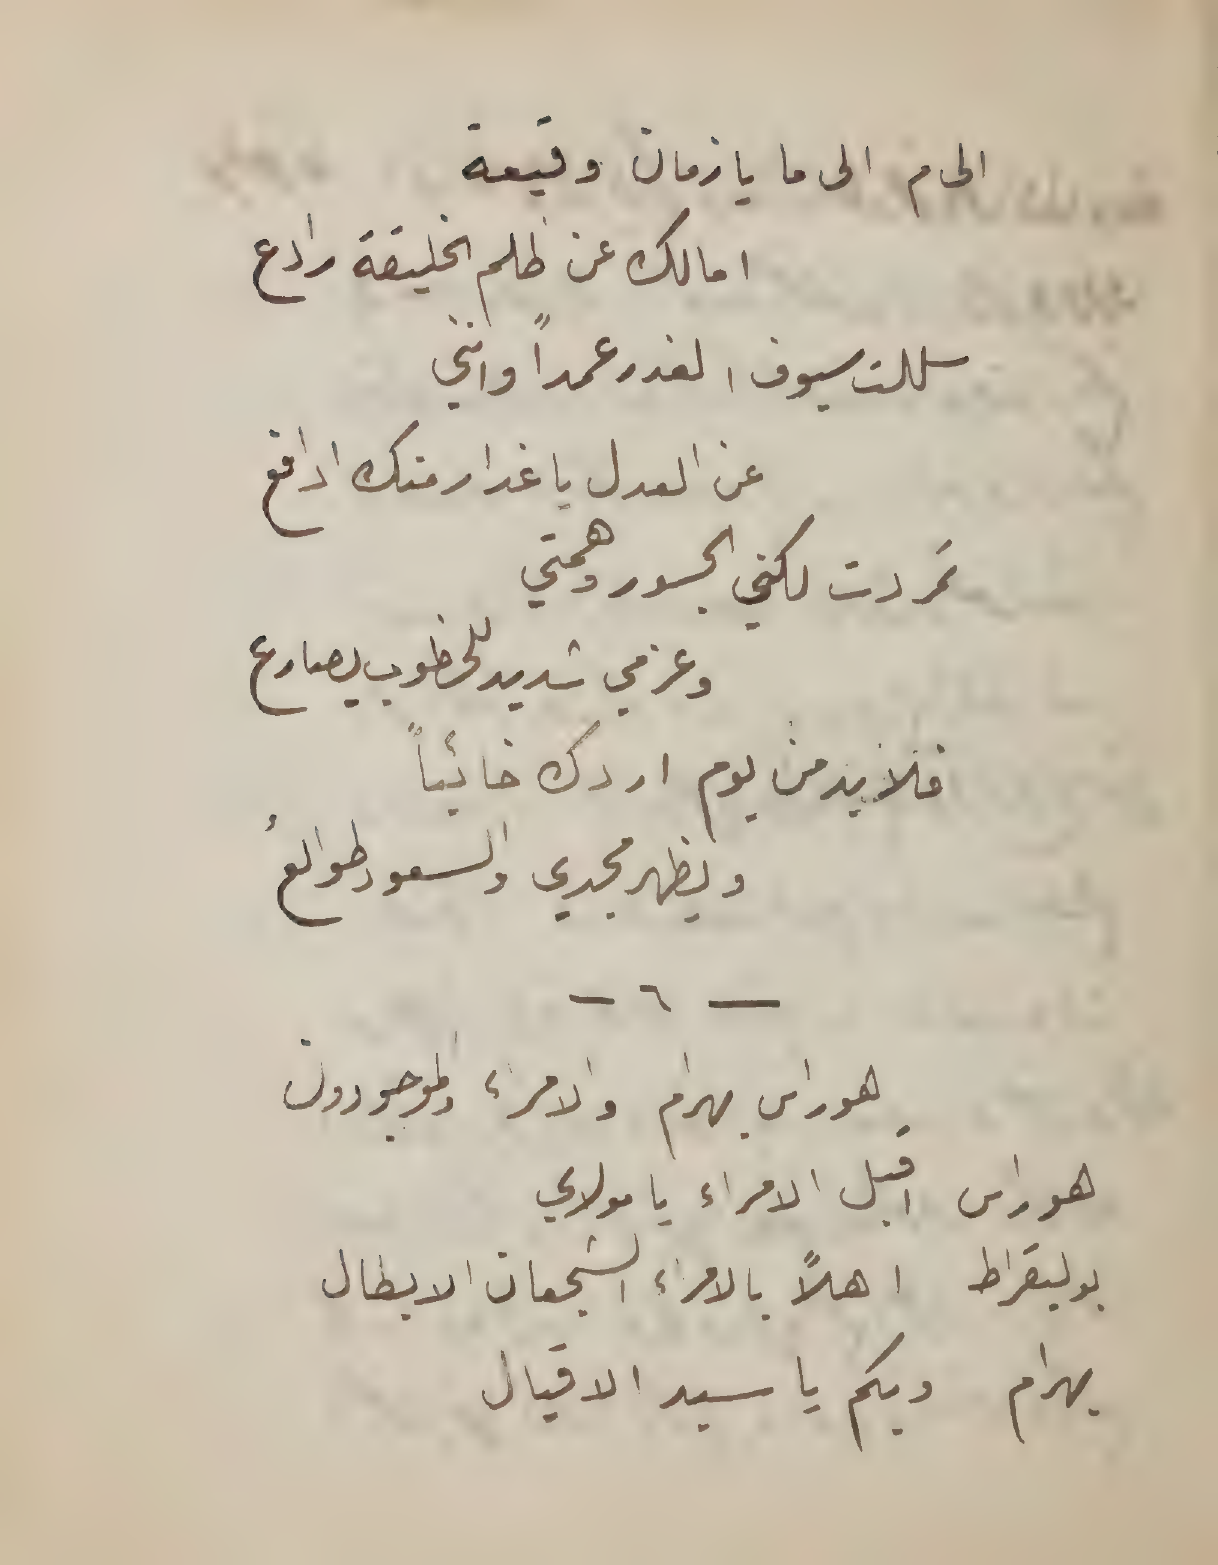 الى م الى ما يا زمان وقيعة
امالك عن ظلم الخليقة رادع
سللت سيوف الغدر عمداً وانني
عن العدل يا غدار منك ادافع
تمردت لكني الجسور وهمتي
وعزمي شديد للخطوب يصارع
فلا بد من يوم اردك خائباً
ويظهر مجدي والسعود طوالعُ
— ٦ —
هوراس بهرام والامراء والموجودون
هوراس اقبل الامراء يا مولاي
بوليقراط اهلاً بالامراء الشجعان الابطال
بهرام وبكم يا سيد الاقيال